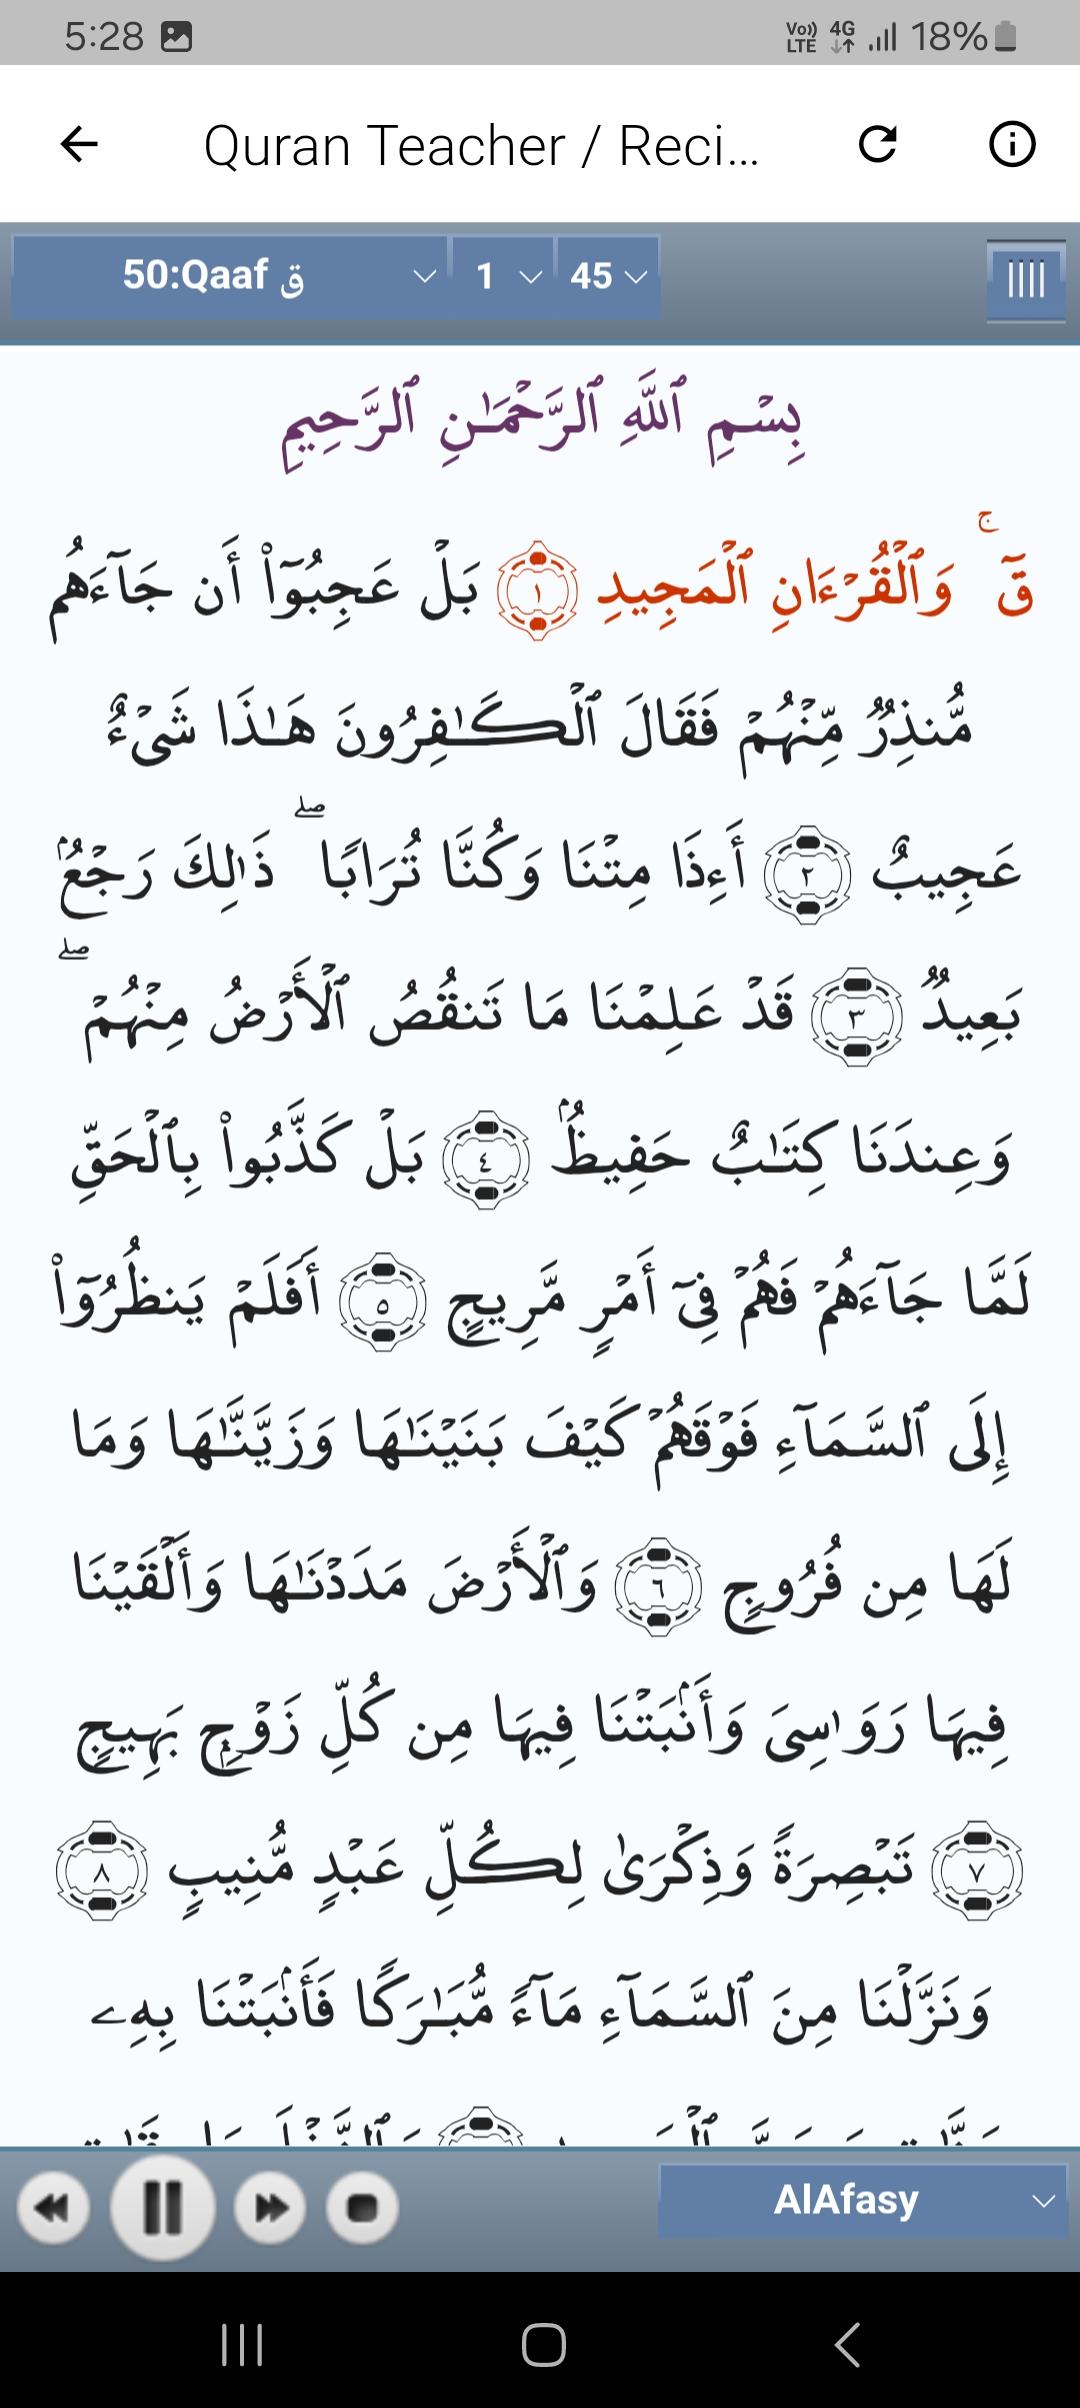 5:28 Vo)) LTE 4G 18%
Quran Teacher / Reci...
50:Qaaf ق 1 45
بِسْمِ ٱللَّهِ ٱلرَّحْمَـٰنِ ٱلرَّحِيمِ
قٓ ۚ وَٱلْقُرْءَانِ ٱلْمَجِيدِ ١ بَلْ عَجِبُوٓا۟ أَن جَآءَهُم
مُّنذِرٌ مِّنْهُمْ فَقَالَ ٱلْكَـٰفِرُونَ هَـٰذَا شَىْءٌ
عَجِيبٌ ٢ أَءِذَا مِتْنَا وَكُنَّا تُرَابًا ۖ ذَٰلِكَ رَجْعٌۢ
بَعِيدٌ ٣ قَدْ عَلِمْنَا مَا تَنقُصُ ٱلْأَرْضُ مِنْهُمْ ۖ
وَعِندَنَا كِتَـٰبٌ حَفِيظٌۢ ٤ بَلْ كَذَّبُوا۟ بِٱلْحَقِّ
لَمَّا جَآءَهُمْ فَهُمْ فِىٓ أَمْرٍ مَّرِيجٍ ٥ أَفَلَمْ يَنظُرُوٓا۟
إِلَى ٱلسَّمَآءِ فَوْقَهُمْ كَيْفَ بَنَيْنَـٰهَا وَزَيَّنَّـٰهَا وَمَا
لَهَا مِن فُرُوجٍ ٦ وَٱلْأَرْضَ مَدَدْنَـٰهَا وَأَلْقَيْنَا
فِيهَا رَوَٰسِىَ وَأَنۢبَتْنَا فِيهَا مِن كُلِّ زَوْجٍۭ بَهِيجٍ
٧ تَبْصِرَةً وَذِكْرَىٰ لِكُلِّ عَبْدٍ مُّنِيبٍ ٨
وَنَزَّلْنَا مِنَ ٱلسَّمَآءِ مَآءً مُّبَـٰرَكًا فَأَنۢبَتْنَا بِهِۦ
AlAfasy